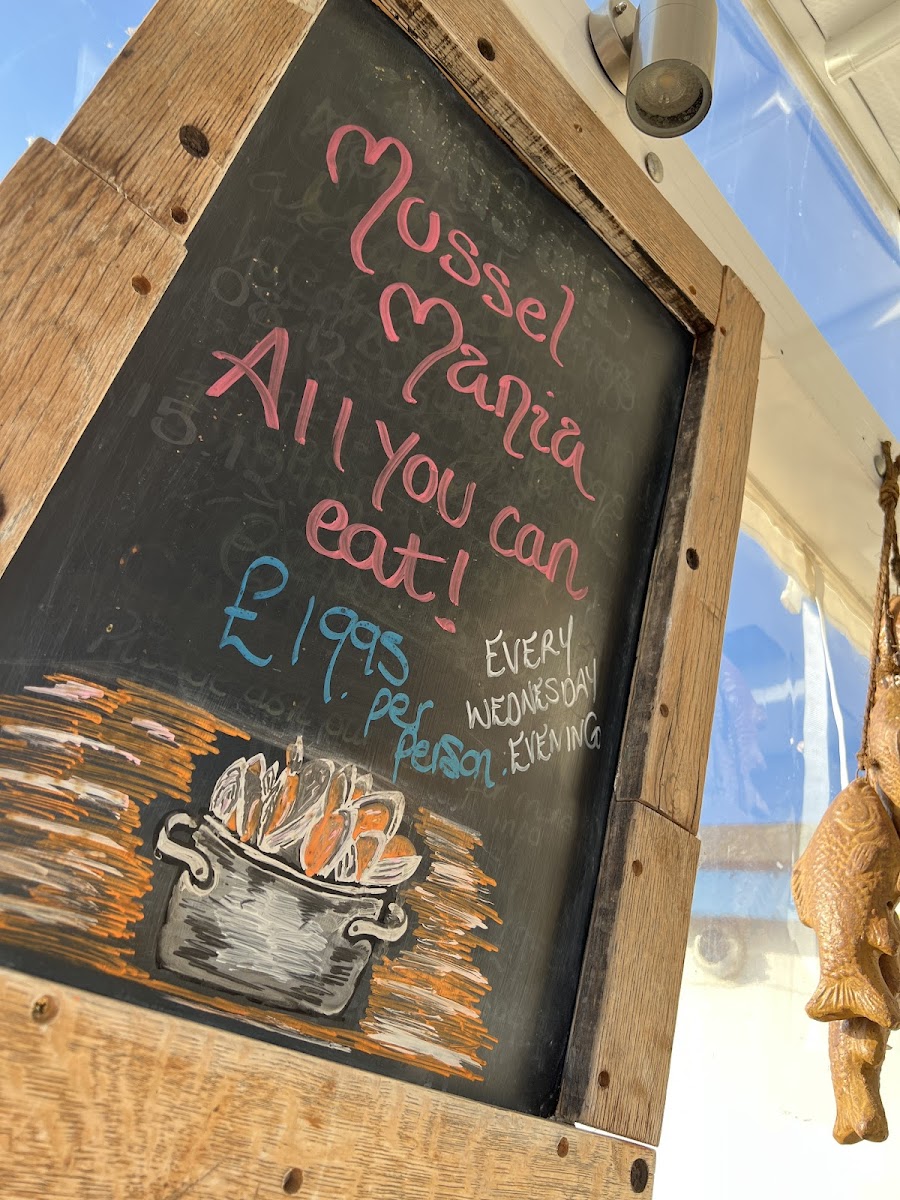 Mussel
Mania
All You can
eat!
£19.95
per
person.
EVERY
WEDNESDAY
EVENING